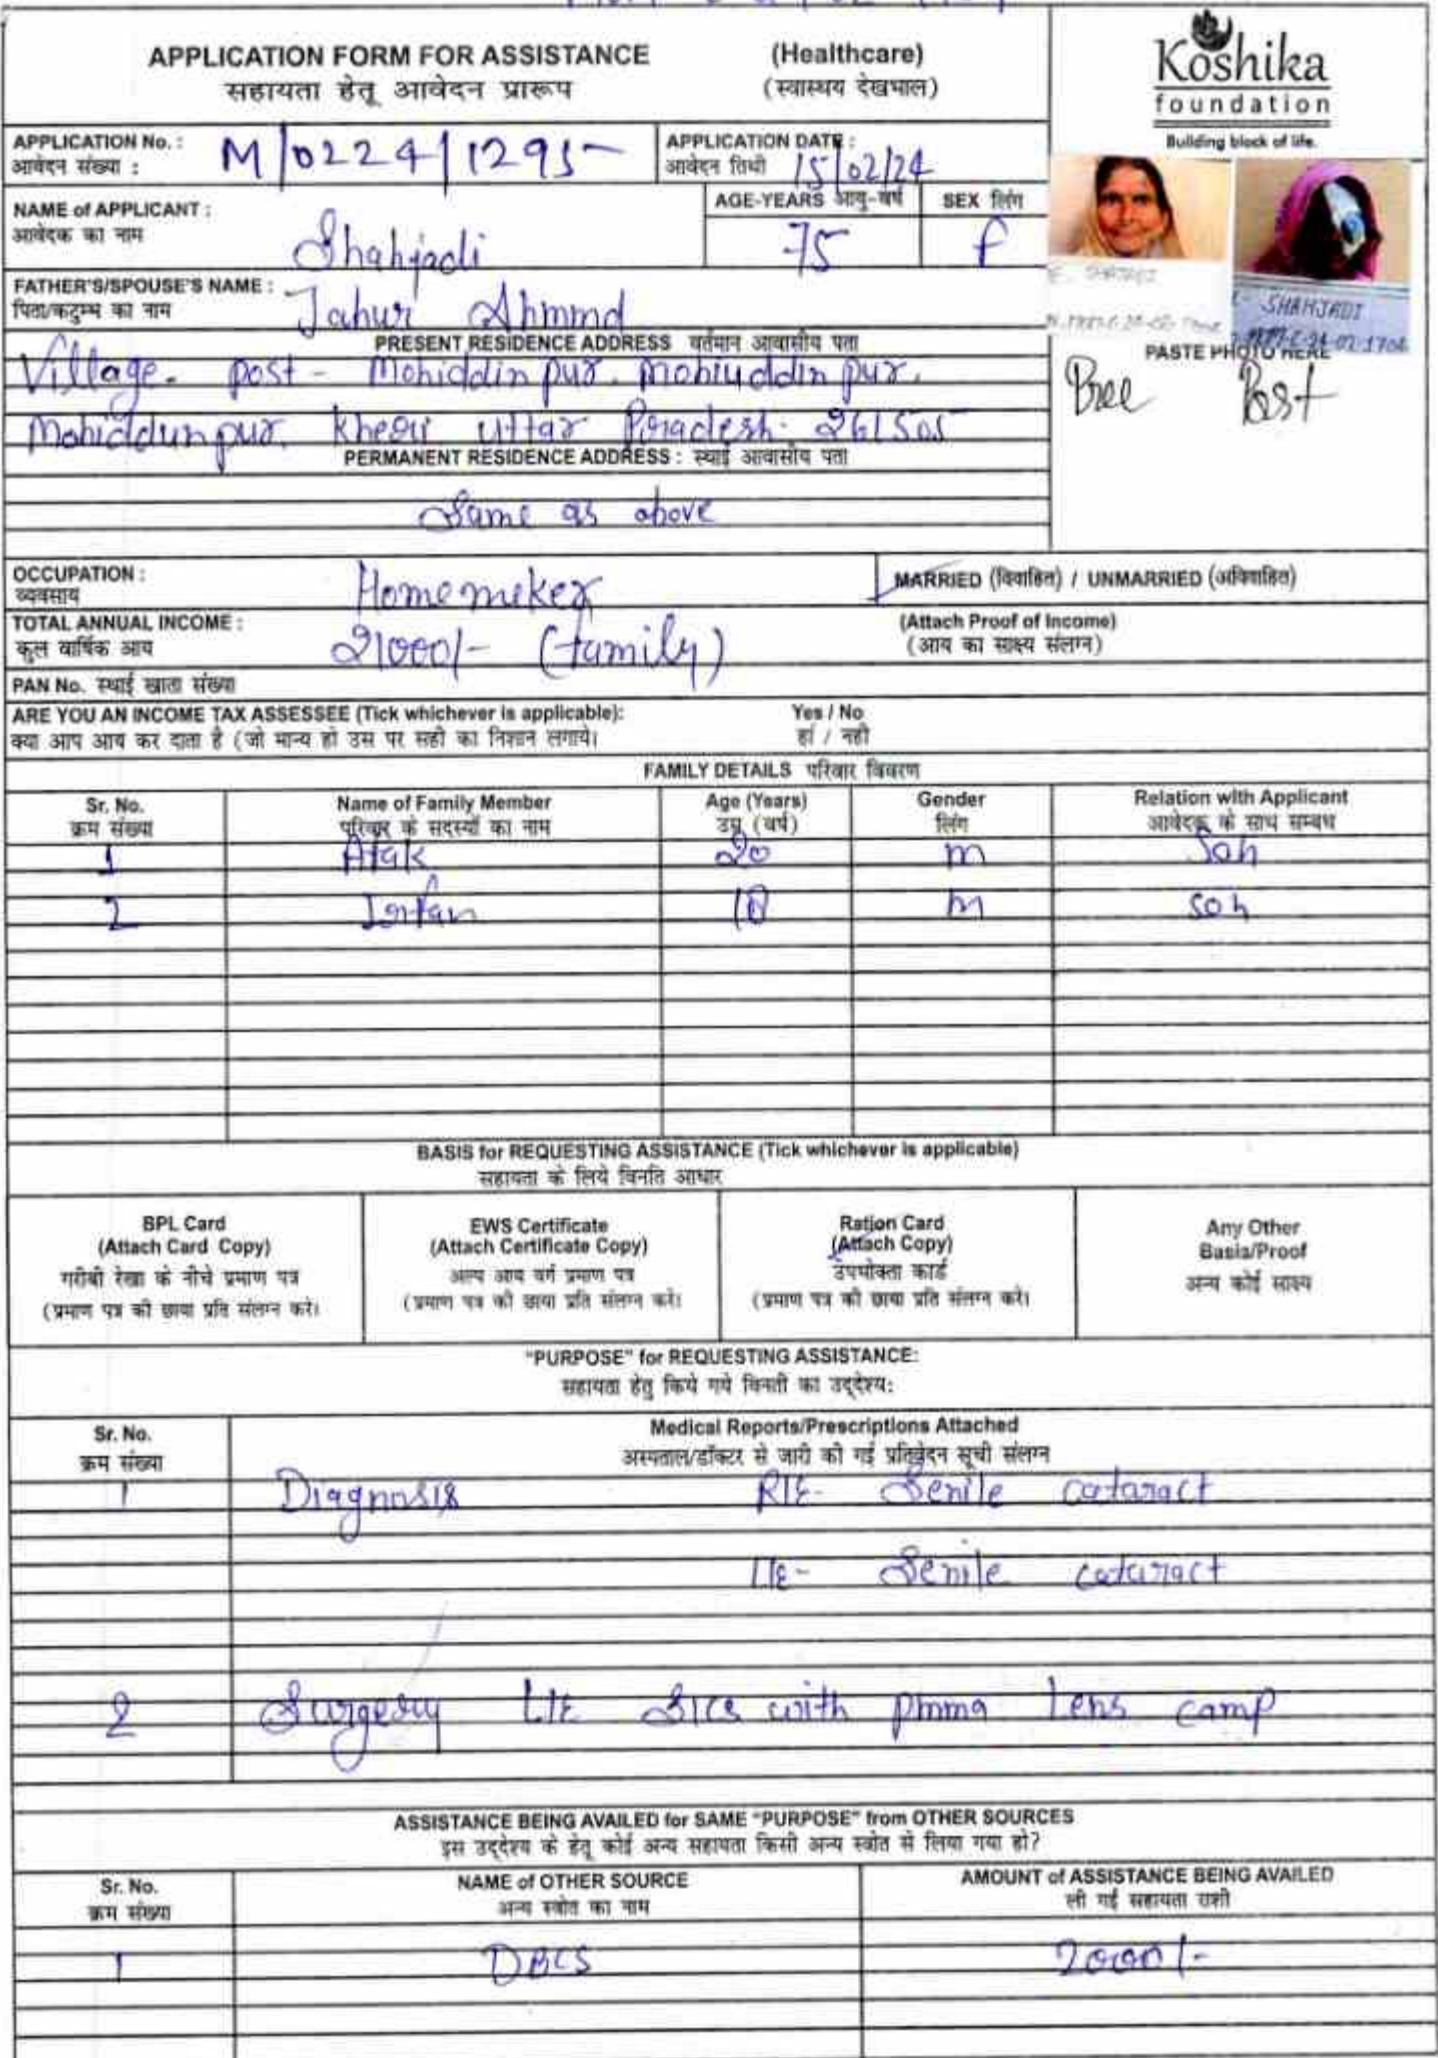 APPLICATION FORM FOR ASSISTANCE (Healthcare)
सहायता हेतू आवेदन प्रारूप (स्वास्थय देखभाल)
Koshika
foundation
Building block of life.
APPLICATION No. : M/0224/1295
आवेदन संख्या :
APPLICATION DATE :
आवेदन तिथी 15/02/24
NAME of APPLICANT :
आवेदक का नाम
Shahjadi
AGE-YEARS आयु-वर्ष
75
SEX लिंग
F
FATHER'S/SPOUSE'S NAME :
पिता/कटुम्ब का नाम
Jahur Ahmmd
SHAHJADI
PASTE PHOTO HERE
Pree Post
PRESENT RESIDENCE ADDRESS वर्तमान आवासीय पता
Village- post- Mohiddinpur, mohiuddinpur,
Mohiddunpur, Kheri uttar Pradesh- 261505
PERMANENT RESIDENCE ADDRESS : स्थाई आवासीय पता
Same as above
OCCUPATION :
व्यवसाय
Homemeker
MARRIED (विवाहित) / UNMARRIED (अविवाहित)
TOTAL ANNUAL INCOME :
कुल वार्षिक आय
21000/- (family)
(Attach Proof of Income)
(आय का साक्ष्य संलग्न)
PAN No. स्थाई खाता संख्या
ARE YOU AN INCOME TAX ASSESSEE (Tick whichever is applicable): Yes / No
क्या आप आय कर दाता है (जो मान्य हो उस पर सही का निशान लगाये। हां / नही
FAMILY DETAILS परिवार विवरण
Sr. No. Name of Family Member Age (Years) Gender Relation with Applicant
क्रम संख्या परिवार के सदस्यों का नाम उम्र (वर्ष) लिंग आवेदक के साथ सम्बध
1 20 m Son
2 Irfan 18 m son
BASIS for REQUESTING ASSISTANCE (Tick whichever is applicable)
सहायता के लिये विनति आधार
BPL Card
(Attach Card Copy)
गरीबी रेखा के नीचे प्रमाण पत्र
(प्रमाण पत्र की छाया प्रति संलग्न करे।
EWS Certificate
(Attach Certificate Copy)
अल्प आय वर्ग प्रमाण पत्र
(प्रमाण पत्र की छाया प्रति संलग्न करे।
Ration Card
(Attach Copy)
उपभोक्ता कार्ड
(प्रमाण पत्र की छाया प्रति संलग्न करे।
Any Other
Basis/Proof
अन्य कोई साक्ष्य
"PURPOSE" for REQUESTING ASSISTANCE:
सहायता हेतु किये गये विनती का उद्देश्य:
Sr. No. Medical Reports/Prescriptions Attached
क्रम संख्या अस्पताल/डॉक्टर से जारी की गई प्रतिवेदन सूची संलग्न
1 Diagnosis R/E- Senile cataract
L/E- Senile cataract
2 Surgery L/E SICS with pmma lens camp
ASSISTANCE BEING AVAILED for SAME "PURPOSE" from OTHER SOURCES
इस उद्देश्य के हेतू कोई अन्य सहायता किसी अन्य स्त्रोत से लिया गया हो?
Sr. No. NAME of OTHER SOURCE AMOUNT of ASSISTANCE BEING AVAILED
क्रम संख्या अन्य स्त्रोत का नाम ली गई सहायता राशी
1 DBCS 2000/-